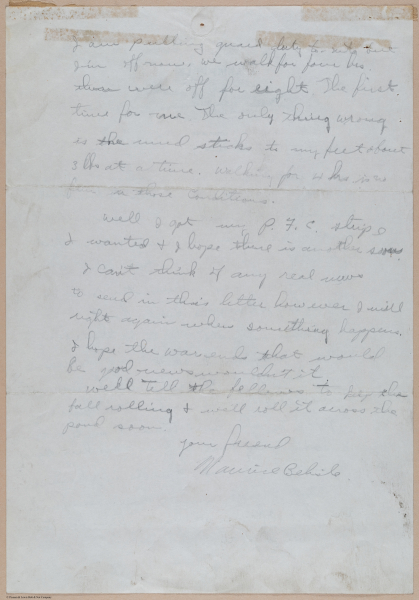 I am pulling guard duty for only
off now. we walk for four hrs
then were off for eight. The first
time for me the only thing wrong
is the mud sticks to my feet about
3 lbs at a time. walking for 4 hrs
in those conditions.
well I got my P. F. C. stripe
I wanted & I hope there is another soon
I can't think of any real news
to send in this letter however I will
right again when something happens.
I hope the war ends that would
be good news wouldn't it
well tell the fellows to keep the
ball rolling & will roll it across the
pond soon.
your friend
Maurice